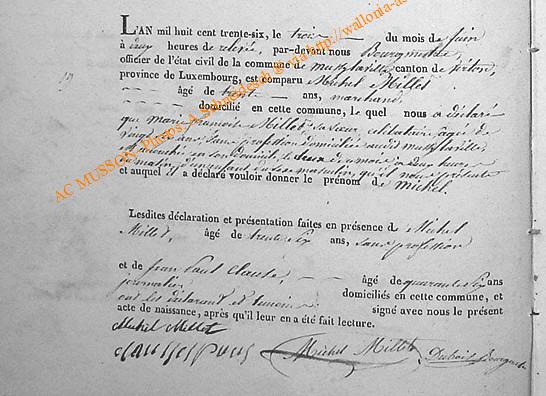 L'AN mil huit cent trente-six, le trois du mois de juin
à deux heures de relevée, par-devant nous Bourgmestre,
officier de l'état civil de la commune de canton de
province de Luxembourg, est comparu Michel Millot
âgé de trente ans, marchand,
domicilié en cette commune, le quel nous a déclaré
que marie Millot, sa sœur, célibataire agée de
vingt ans, sans profession domiciliée audit
est accouchée en son domicile, le deux du mois à deux heures
du matin, d'un enfant du sexe masculin, qu'il nous présente
et auquel il a déclaré vouloir donner le prénom de michel.
Lesdites déclaration et présentation faites en présence de Michel
Millot, âgé de trente six ans, sans profession
et de jean Paul Claude, âgé de quarante six ans
journalier, domiciliés en cette commune, et
ont les déclarant et temoins signé avec nous le présent
acte de naissance, après qu'il leur en a été fait lecture.
Michel Millot
Michel Millot Dubois
AC MUSSON-Photos A. Schneidesch @ via http://wallonia-as